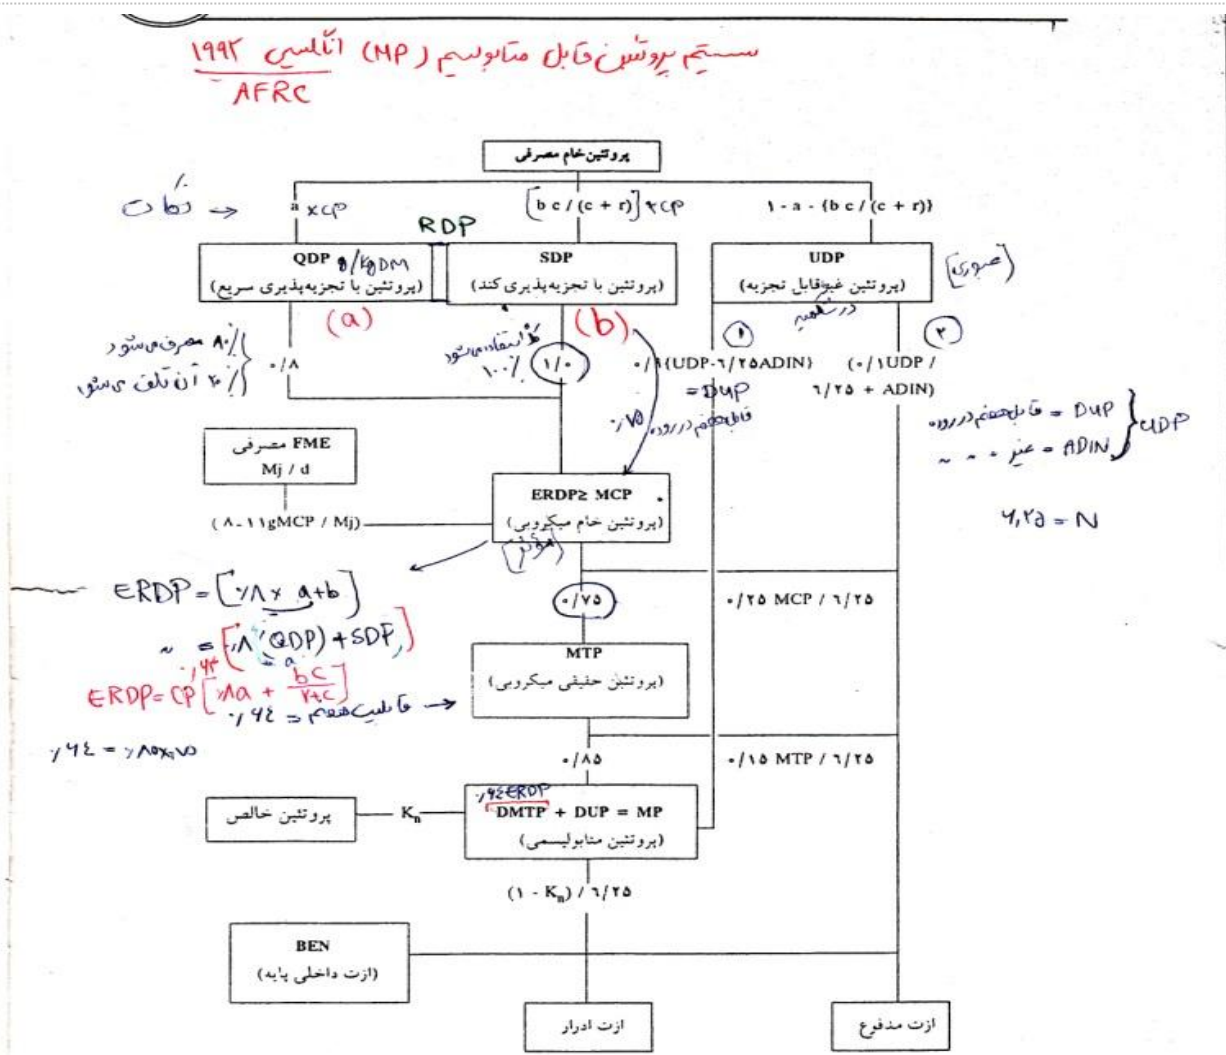 سیستم پروتئین قابل متابولیسم (MP) انگلیسی ۱۹۹۲
AFRC
پروتئین خام مصرفی
a ×CP
[b c / (c + r)] ×CP
۱ - a - {b c / (c + r)}
نکات
RDP
QDP g/kgDM
(پروتئین با تجزیه‌پذیری سریع)
SDP
(پروتئین با تجزیه‌پذیری کند)
UDP
(پروتئین غیرقابل تجزیه)
در شکمبه
(عبوری)
(a)
(b)
۱
۲
٪۸۰ مصرف می‌شود
٪۲۰ آن تلف می‌شود
۰/۸
استفاده می‌شود
٪۱۰۰
۱/۰
۰/۹{UDP-۶/۲۵ADIN}
= DUP
قابل هضم در روده
۰/۷۵
(۰/۱UDP /
۶/۲۵ + ADIN)
DUP = قابل هضم در روده
ADIN = غیر " " "
UDP
۶,۲۵ = N
FME مصرفی
Mj / d
(۸-۱۱gMCP / Mj)
ERDP≥ MCP
(پروتئین خام میکروبی)
(مؤثر)
ERDP = [۰/۸ × a+b]
" = [۰/۸ (QDP) + SDP]
= a
ERDP = CP [۰/۸a + bc/r+c]
۰/۶۴ = قابلیت هضم
۰/۶۴ = ۰/۸۵×۰/۷۵
۰/۷۵
۰/۲۵ MCP / ۶/۲۵
MTP
(پروتئین حقیقی میکروبی)
۰/۸۵
۰/۱۵ MTP / ۶/۲۵
پروتئین خالص
Kn
۰/۶۴ERDP
DMTP + DUP = MP
(پروتئین متابولیسمی)
(۱ - Kn) / ۶/۲۵
BEN
(ازت داخلی پایه)
ازت ادرار
ازت مدفوع